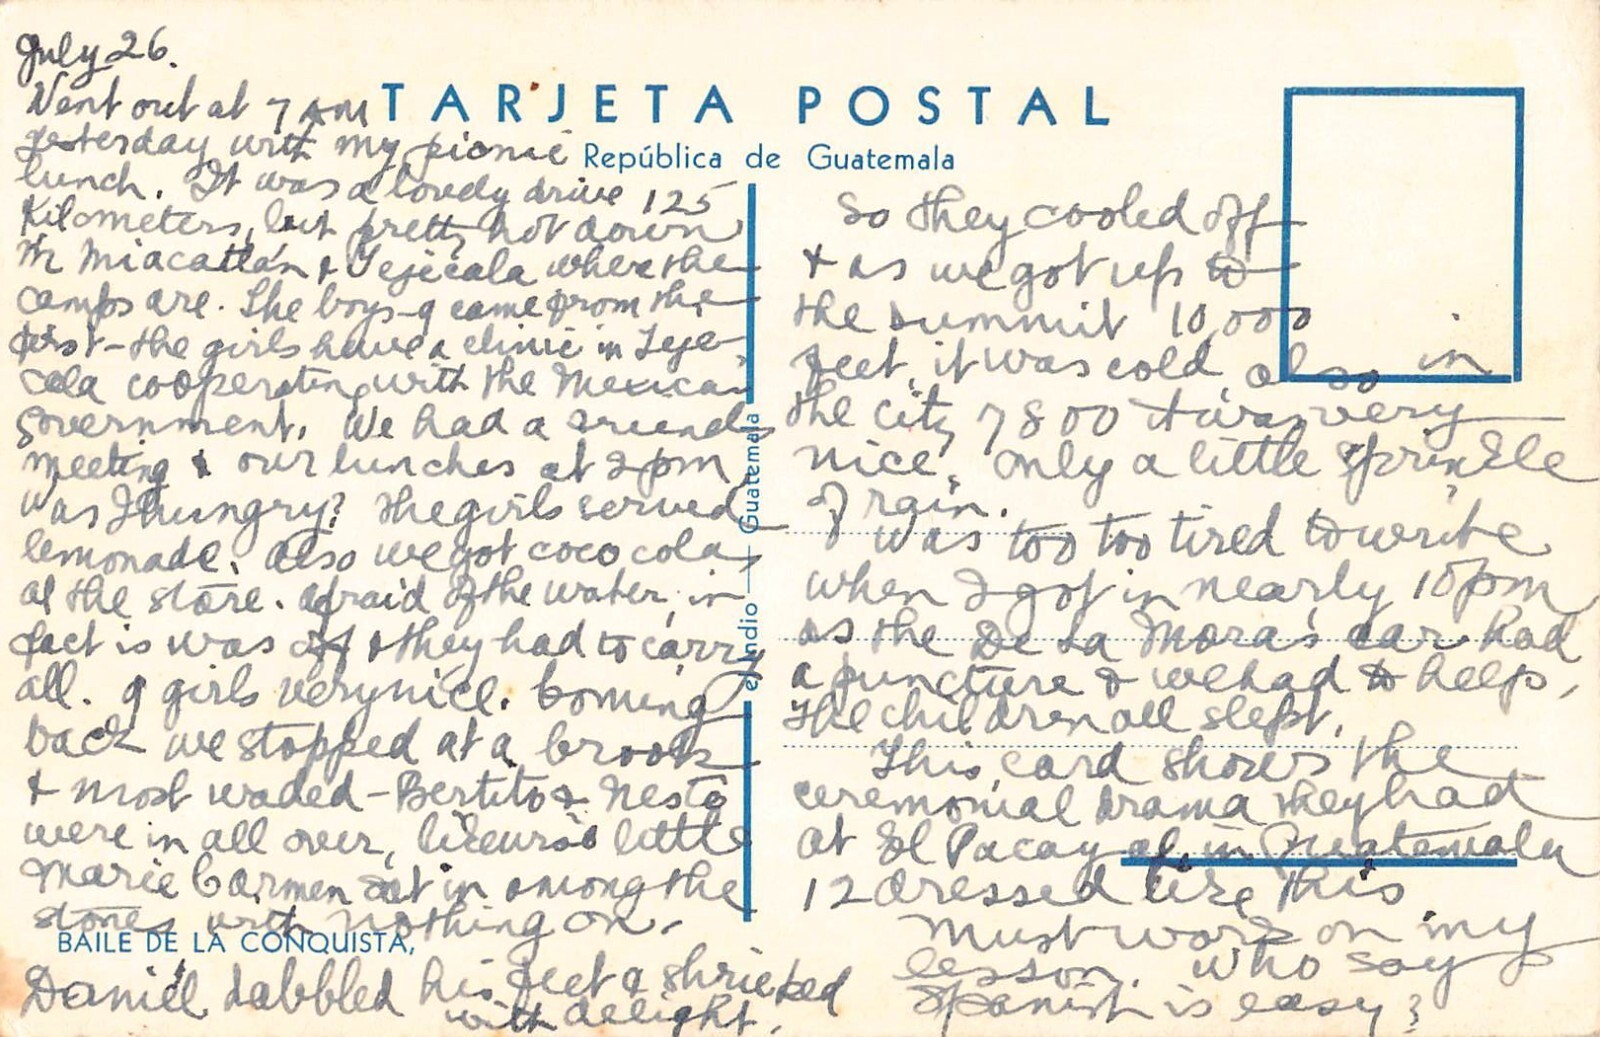 July 26.
Went out at 7 AM
yesterday with my picnic
lunch. It was a lovely drive 125
kilometers, but pretty hot down
in Miacatlán & Tejecala where the
camps are. The boys - 9 came from the
first - the girls have a clinic in Teje-
cala cooperating with the Mexican
government. We had a Friends
meeting & our lunches at 2 pm
Was I hungry? The girls served
lemonade. Also we got coco cola
at the store. Afraid of the water, in
fact is was off & they had to carry
all. 9 girls very nice. Coming
back we stopped at a brook
& most waded - Bertito & Nesto
were in all over, likewise little
Marie Carmen sat in among the
stones with nothing on.
Daniel dabbled his feet & shrieked
with delight.
TARJETA POSTAL
República de Guatemala
el Indio — Guatemala
BAILE DE LA CONQUISTA,
So they cooled off
& as we got up to
the summit 10,000
feet, it was cold, also in
the city 7800 it was very
nice. Only a little sprinkle
of rain.
Was too too tired to write
when I got in nearly 10 pm
as the De La Mora's car had
a puncture & we had to help.
The children all slept.
This card shows the
ceremonial drama they had
at El Pacay in Guatemala
12 dressed like this
Must work on my
lesson. Who say
Spanish is easy?